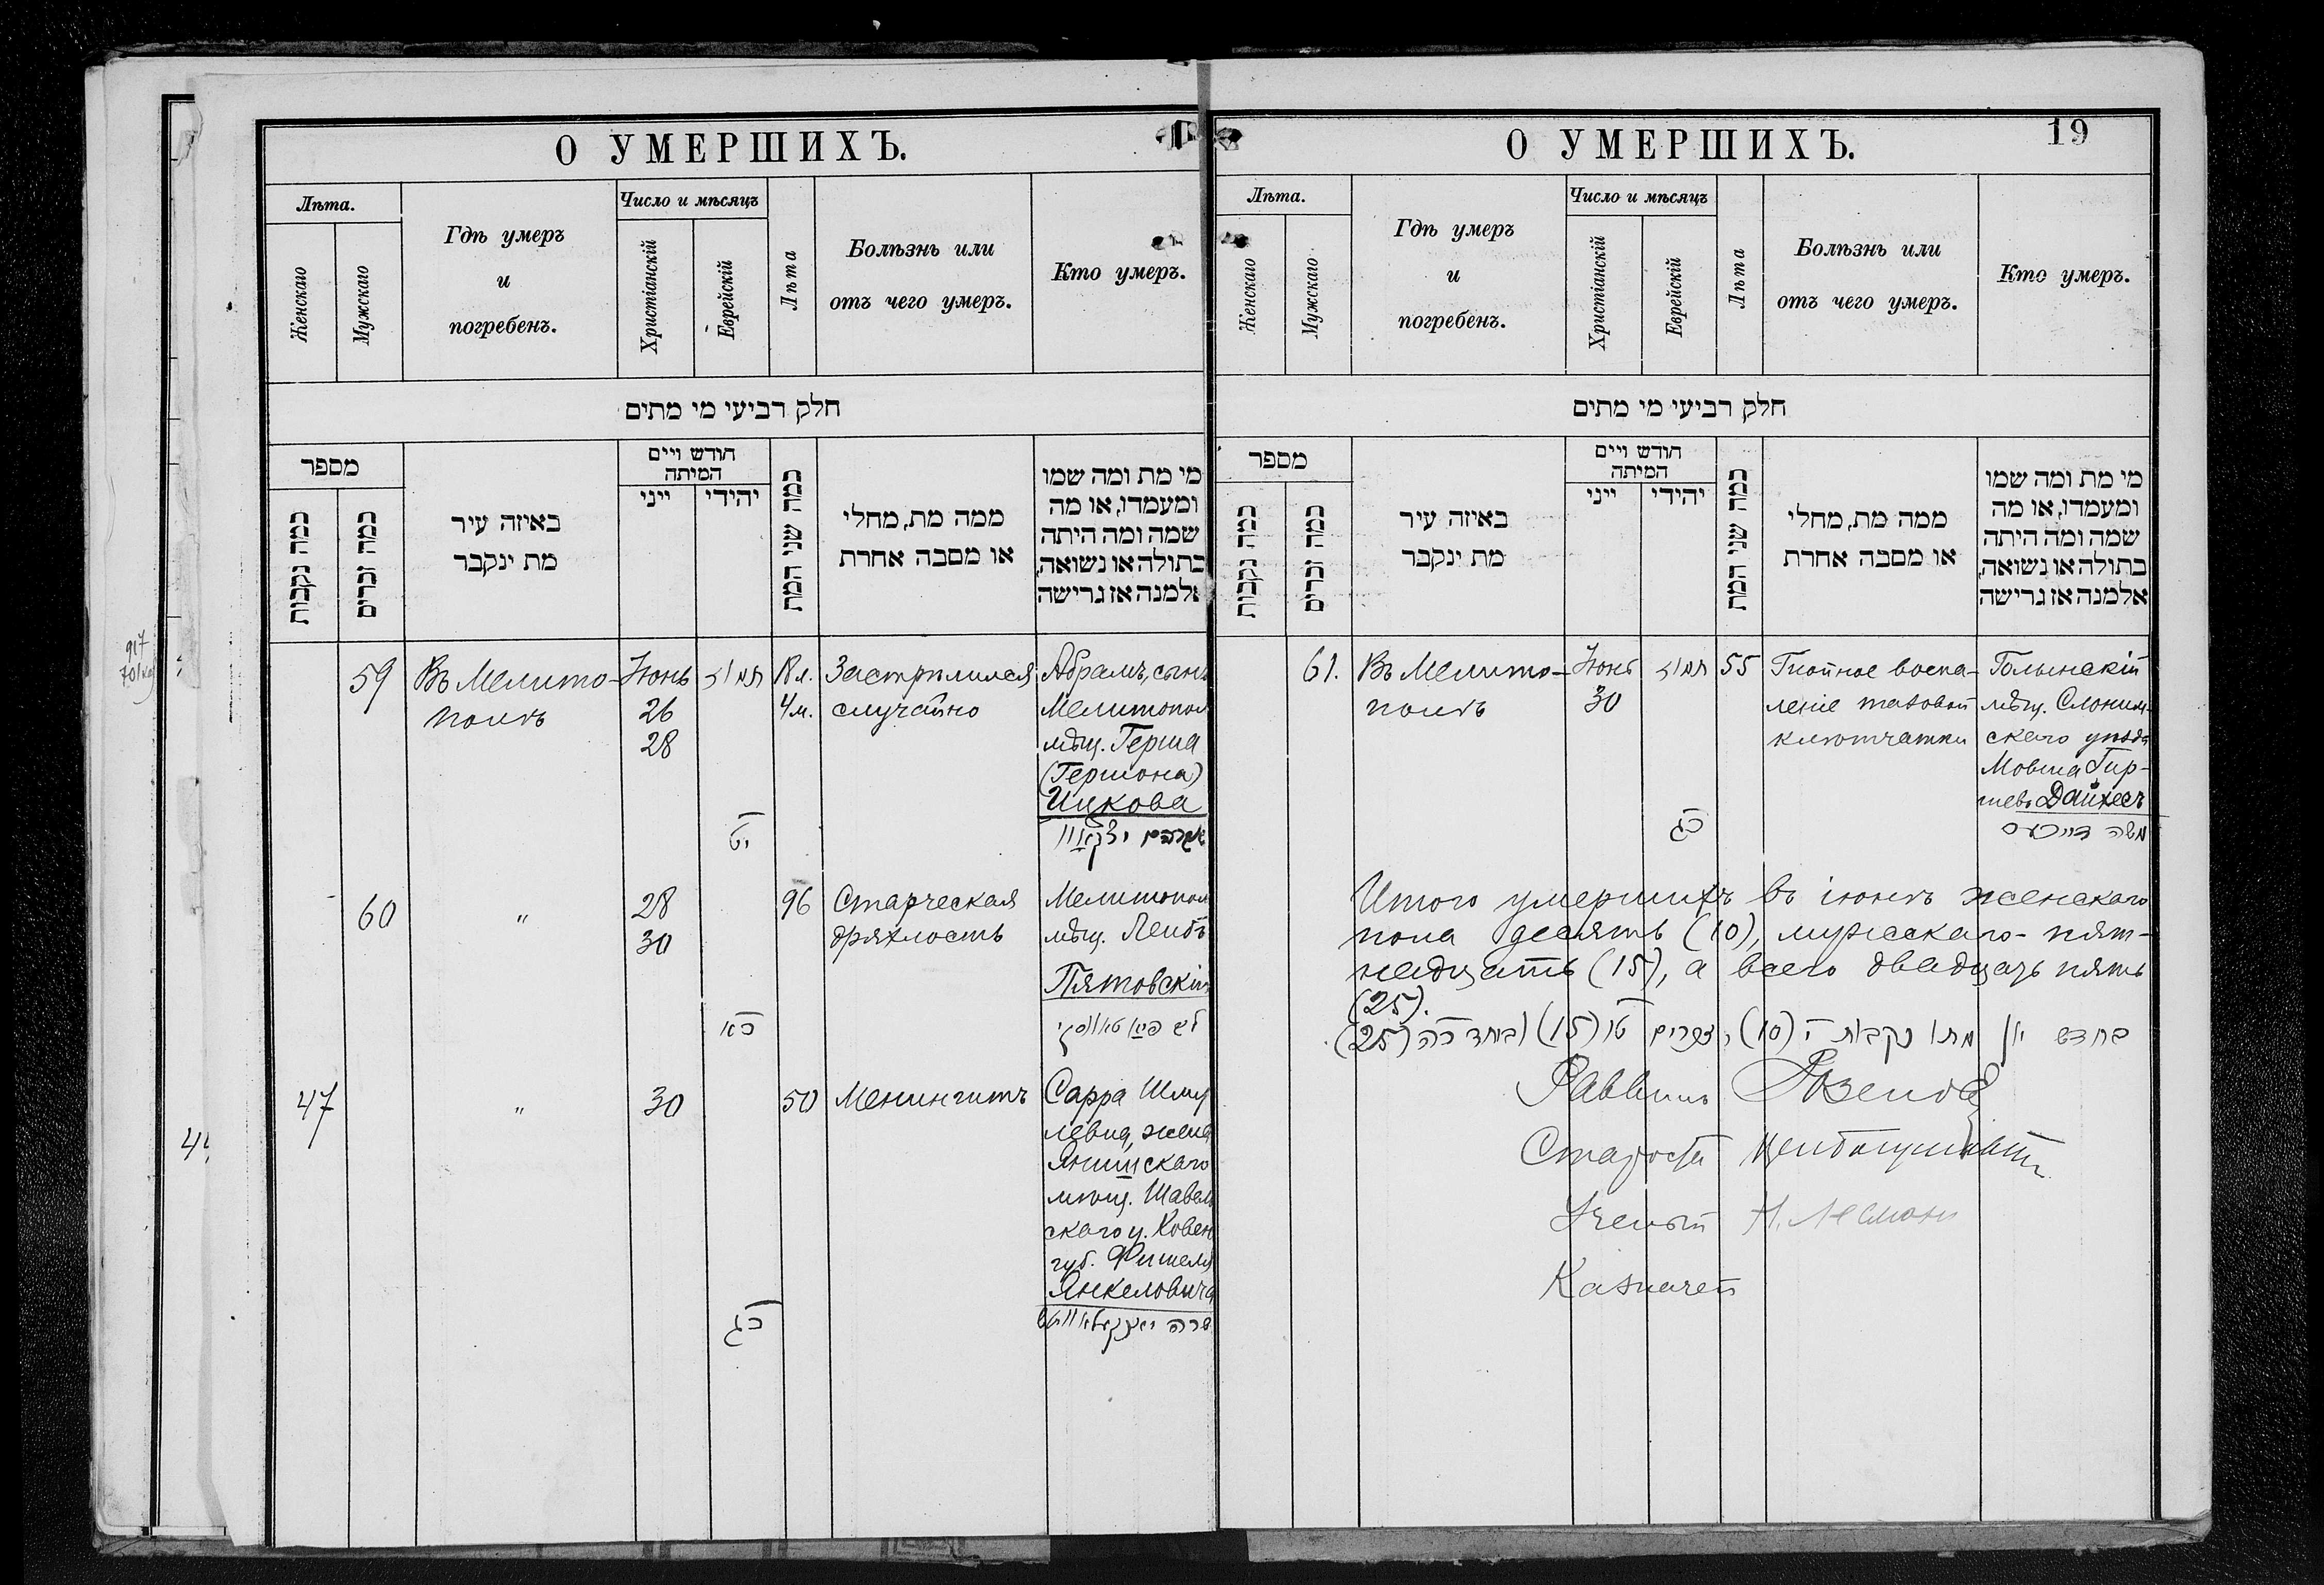 917
44
О УМЕРШИХЪ.
Лѣта.
Женскаго
Мужскаго
Гдѣ умеръ
и
погребенъ.
Число и мѣсяцъ
Христіанскій
Еврейскій
Лѣта
Болѣзнь или
отъ чего умеръ.
Кто умеръ.
חלק רביעי מי מתים
מספר
כמה נקבות
כמה זכרים
באיזה עיר
מת ינקבר
חודש ויים
המיתה
ייני
יהידי
כמה שני המת
ממה מת, מחלי
או מסבה אחרת
מי מת ומה שמו
ומעמדו, או מה
שמה ומה היתה
בתולה או נשואה,
אלמנה אז גרישה
59
Въ Мелито-
полѣ
Іюнь
26
28
תמוז
יט
18 л.
4 м.
Застрѣлился
случайно
Абрамъ, сынъ
Мелитопол
мѣщ. Герша
(Гершона)
Ицкова
אברהם יצקאוו
60
"
28
30
כא
96
Старческая
дряхлость
Мелитопол
мѣщ. Лейбъ
Пятовскій
47
"
30
כג
50
Менингитъ
Сарра Шму
левна, жена
Янишскаго
мѣщ. Шавель
скаго у. Ковен
губ. Фишеля
Янкеловича
שרה יאנקעלאוויטש
О УМЕРШИХЪ.
19
Лѣта.
Женскаго
Мужскаго
Гдѣ умеръ
и
погребенъ.
Число и мѣсяцъ
Христіанскій
Еврейскій
Лѣта
Болѣзнь или
отъ чего умеръ.
Кто умеръ.
חלק רביעי מי מתים
מספר
כמה נקבות
כמה זכרים
באיזה עיר
מת ינקבר
חודש ויים
המיתה
ייני
יהידי
כמה שני המת
ממה מת, מחלי
או מסבה אחרת
מי מת ומה שמו
ומעמדו, או מה
שמה ומה היתה
בתולה או נשואה,
אלמנה אז גרישה
61.
Въ Мелито-
полѣ
Іюнь
30
תמוז
כג
55
Гнойное воспа-
леніе тазовой
клѣтчатки
Голынскій
мѣщ. Слоним-
скаго уѣзда
Мовша Гир-
шевъ Дайхесъ
משה דייכעס
Итого умершихъ въ іюнѣ женскаго
пола десять (10), мужескаго - пят-
надцать (15), а всего двадцать пять
(25).
בחדש יון מתו נקבות י (10), זכרים טו (15) וביחד כה (25).
Раввинъ
Староста
Ученый
Казначей